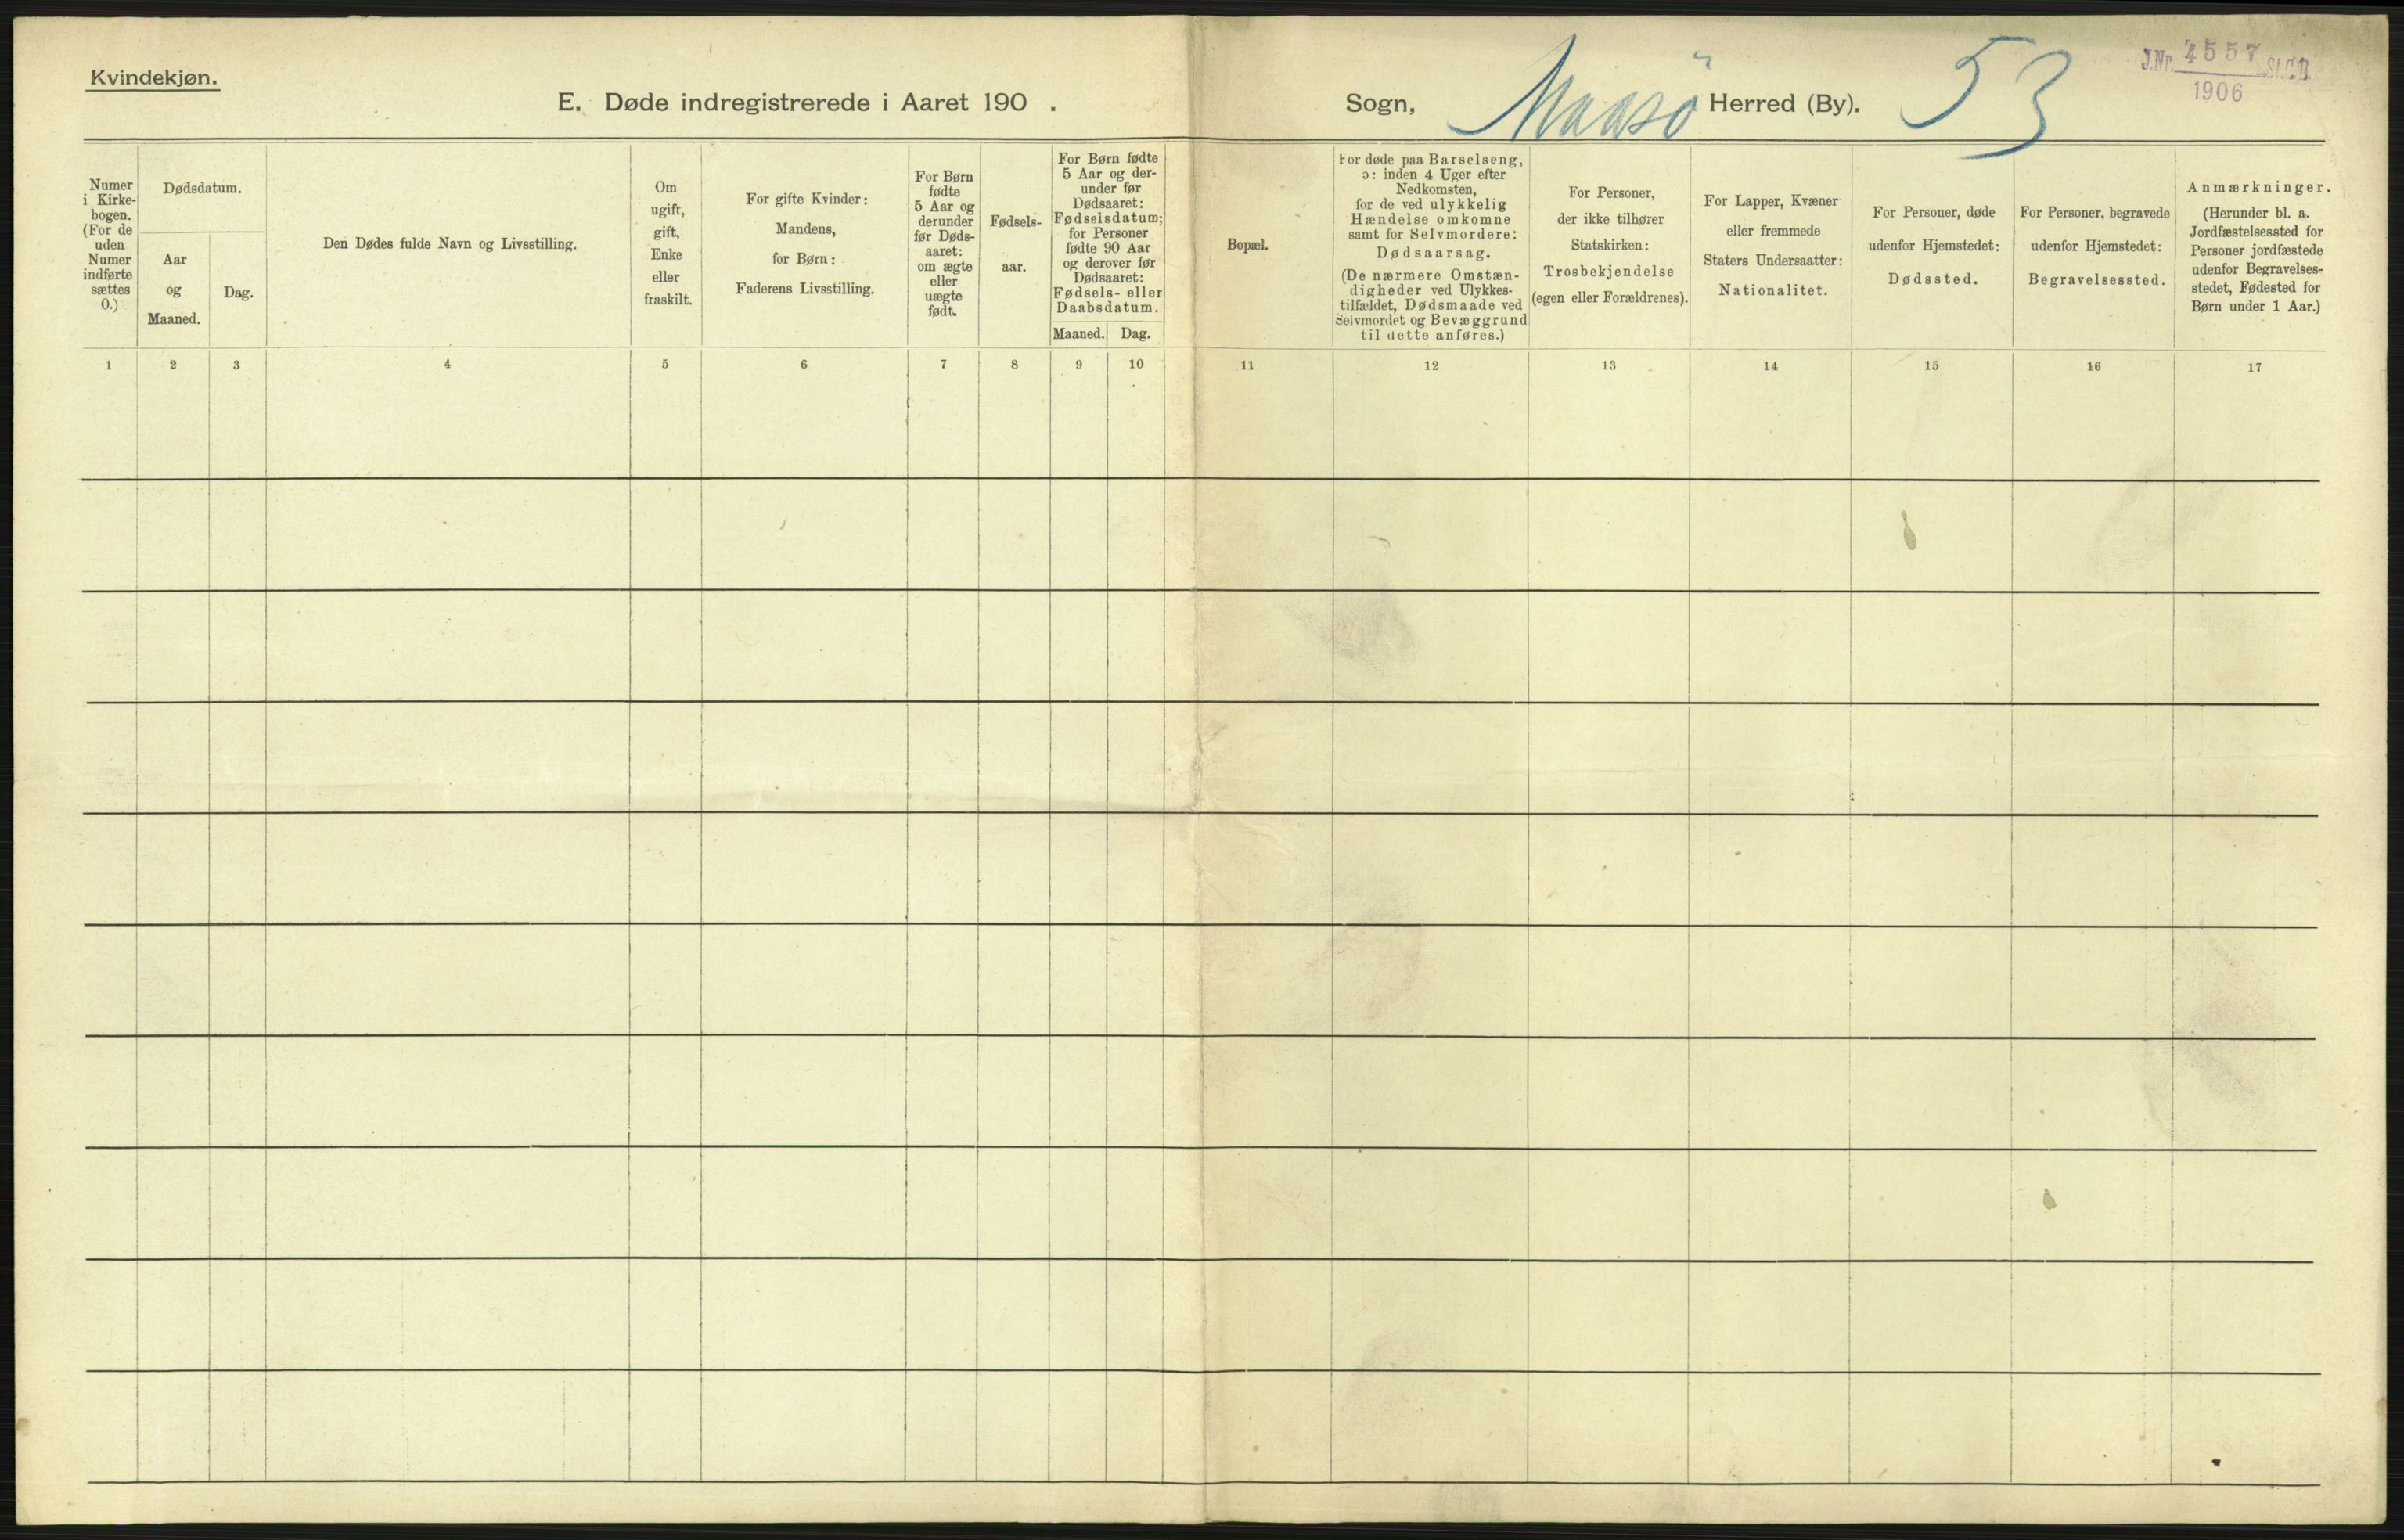 Kvindekjøn.
E. Døde indregistrerede i Aaret 190 .
Sogn, Maasö Herred (By). 53
J.Nr. 4557 St.C.B.
1906
Numer
i Kirke-
bogen.
(For de
uden
Numer
indførte
sættes
0.)
Dødsdatum.
Aar
og
Maaned.
Dag.
Den Dødes fulde Navn og Livsstilling.
Om
ugift,
gift,
Enke
eller
fraskilt.
For gifte Kvinder:
Mandens,
for Børn:
Faderens Livsstilling.
For Børn
fødte
5 Aar og
derunder
før Døds-
aaret:
om ægte
eller
uægte
født.
Fødsels-
aar.
For Børn fødte
5 Aar og der-
under før
Dødsaaret:
Fødselsdatum;
for Personer
fødte 90 Aar
og derover før
Dødsaaret:
Fødsels- eller
Daabsdatum.
Maaned. Dag.
Bopæl.
For døde paa Barselseng,
ɔ: inden 4 Uger efter
Nedkomsten,
for de ved ulykkelig
Hændelse omkomne
samt for Selvmordere:
Dødsaarsag.
(De nærmere Omstæn-
digheder ved Ulykkes-
tilfældet, Dødsmaade ved
Selvmordet og Bevæggrund
til dette anføres.)
For Personer,
der ikke tilhører
Statskirken:
Trosbekjendelse
(egen eller Forældrenes).
For Lapper, Kvæner
eller fremmede
Staters Undersaatter:
Nationalitet.
For Personer, døde
udenfor Hjemstedet:
Dødssted.
For Personer, begravede
udenfor Hjemstedet:
Begravelsessted.
Anmærkninger.
(Herunder bl. a.
Jordfæstelsessted for
Personer jordfæstede
udenfor Begravelses-
stedet, Fødested for
Børn under 1 Aar.)
1 2 3 4 5 6 7 8 9 10 11 12 13 14 15 16 17